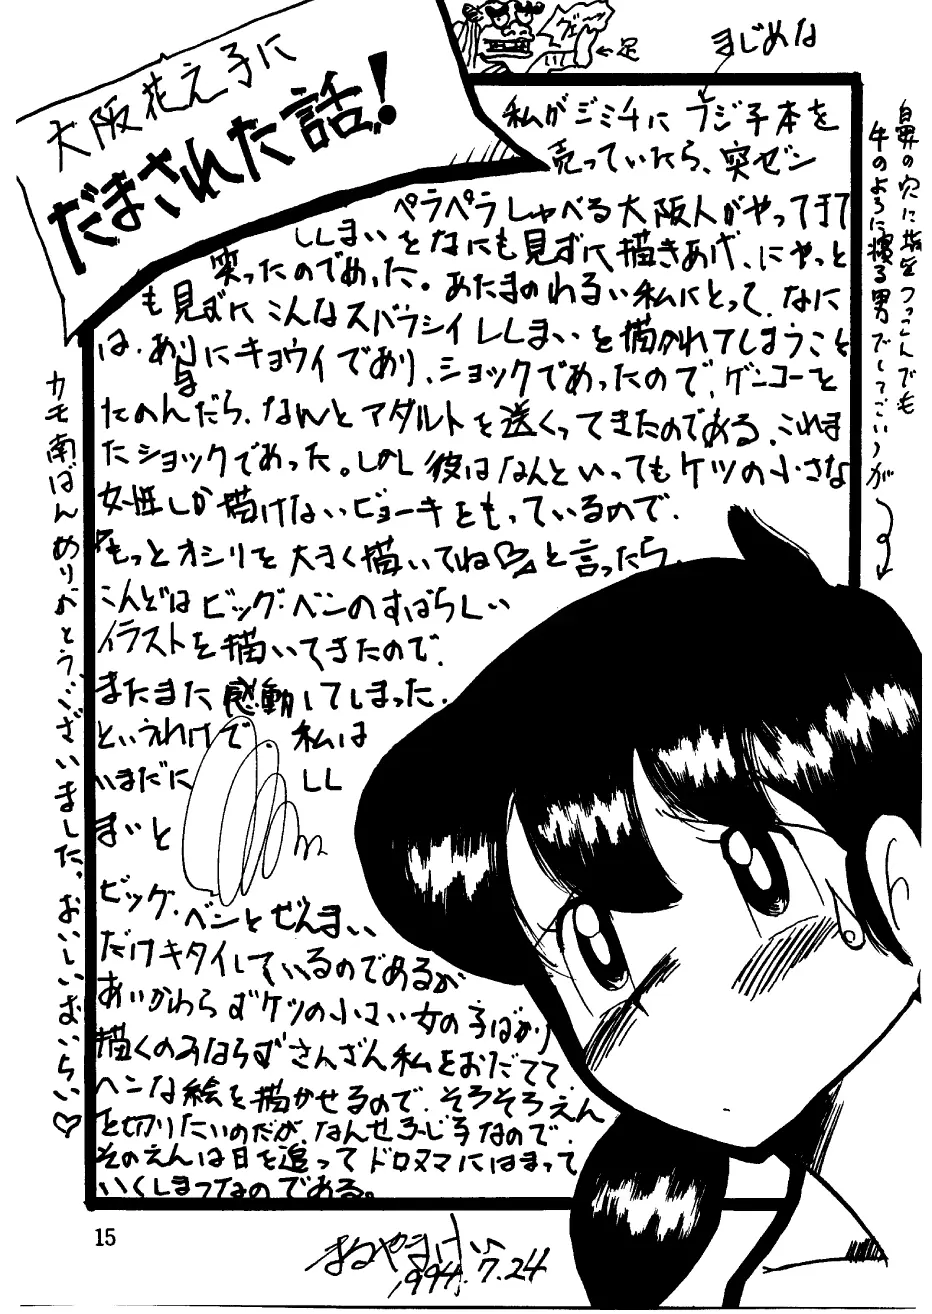 大阪花え子に
だまされた話!
フェ〜
←足
まじめな
私がジミチにフジ子本を
売っていたら、突ゼン
ペラペラしゃべる大阪人がやってきて
ししまいをなにも見ずに描きあげ、にやっと
笑ったのであった。あたまのわるい私にとって、なに
も見ずにこんなスバラシイししまいを描かれてしまうこと
は、ありにキョウイであり、ショックであったので、ゲンコーを
たのんだら、なんとアダルトを送くってきたのである。これま
たショックであった。しかし彼はなんといってもケツの小さな
女性しか描けないビョーキをもっているので、
『もっとオシリを大きく描いてね♡』と言ったら、
こんどはビッグ・ベンのすばらしい
イラストを描いてきたので、
またまた感動してしまった。
というわけで 私は
いまだに しし
まいと
ビッグ・ベンとぜんまい
だけキタイしているのであるが
あいかわらずケツの小さい女の子ばかり
描くのみならずさんざん私をおだてて、
ヘンな絵を描かせるので、そろそろえん
を切りたいのだが、なんせふじ子なので、
そのえんは日を追ってドロヌマにはまって
いくしまつなのである。
鼻の穴に指をつっこんでも
牛のように寝る男でしてございますが
カモ南ばんありがとうございました。おいしいおいらい♡
15
まるやまけい
1994.7.24